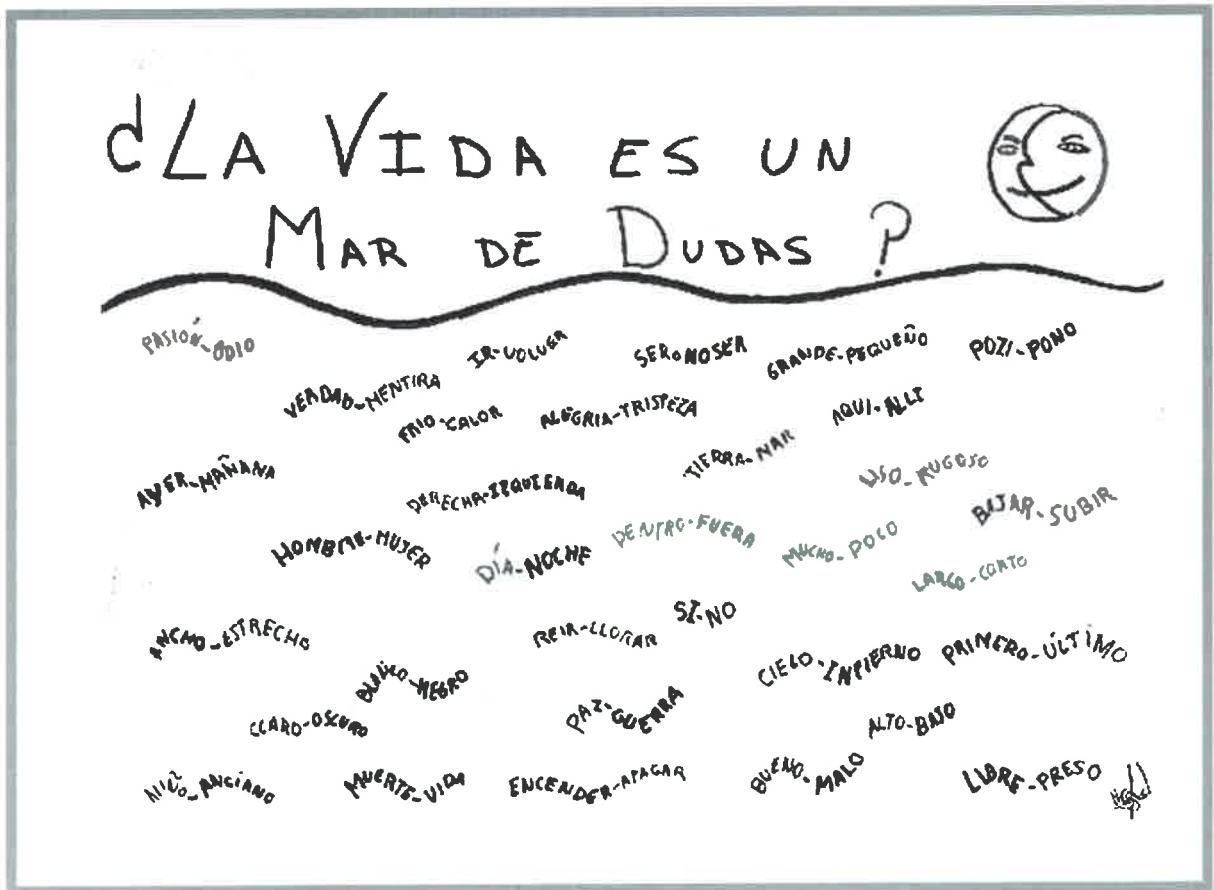 ¿LA VIDA ES UN
MAR DE DUDAS?
PASIÓN-ODIO
IR-VOLVER
SER-NO SER
GRANDE-PEQUEÑO
POZI-PONO
VERDAD-MENTIRA
FRIO-CALOR
ALEGRIA-TRISTEZA
AQUI-ALLI
AYER-MAÑANA
DERECHA-IZQUIERDA
TIERRA-MAR
LISO-RUGOSO
BAJAR-SUBIR
HOMBRE-MUJER
DÍA-NOCHE
DENTRO-FUERA
MUCHO-POCO
LARGO-CORTO
ANCHO-ESTRECHO
REIR-LLORAR
SI-NO
BLANCO-NEGRO
CIELO-INFIERNO
PRIMERO-ÚLTIMO
CLARO-OSCURO
PAZ-GUERRA
ALTO-BAJO
NIÑO-ANCIANO
MUERTE-VIDA
ENCENDER-APAGAR
BUENO-MALO
LIBRE-PRESO